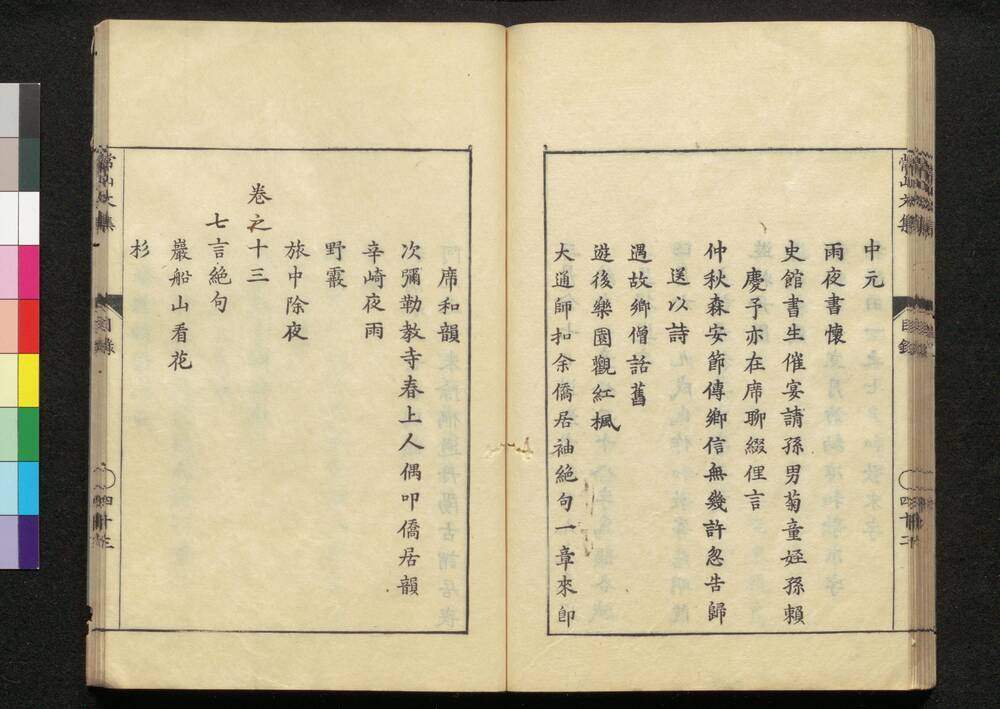 中元
雨夜書懷
史館書生催宴請孫男菊童姪孫賴
慶予亦在席聊綴俚言
仲秋森安節傳鄉信無幾許忽告歸
送以詩
遇故鄉僧話舊
遊後樂園觀紅楓
大通師扣余僑居袖絶句一章來卽
常山文集
目錄
四十二
席和韻
次彌勒教寺春上人偶叩僑居韻
辛崎夜雨
野霰
旅中除夜
卷之十三
七言絶句
巖船山看花
杉
常山文集
目錄